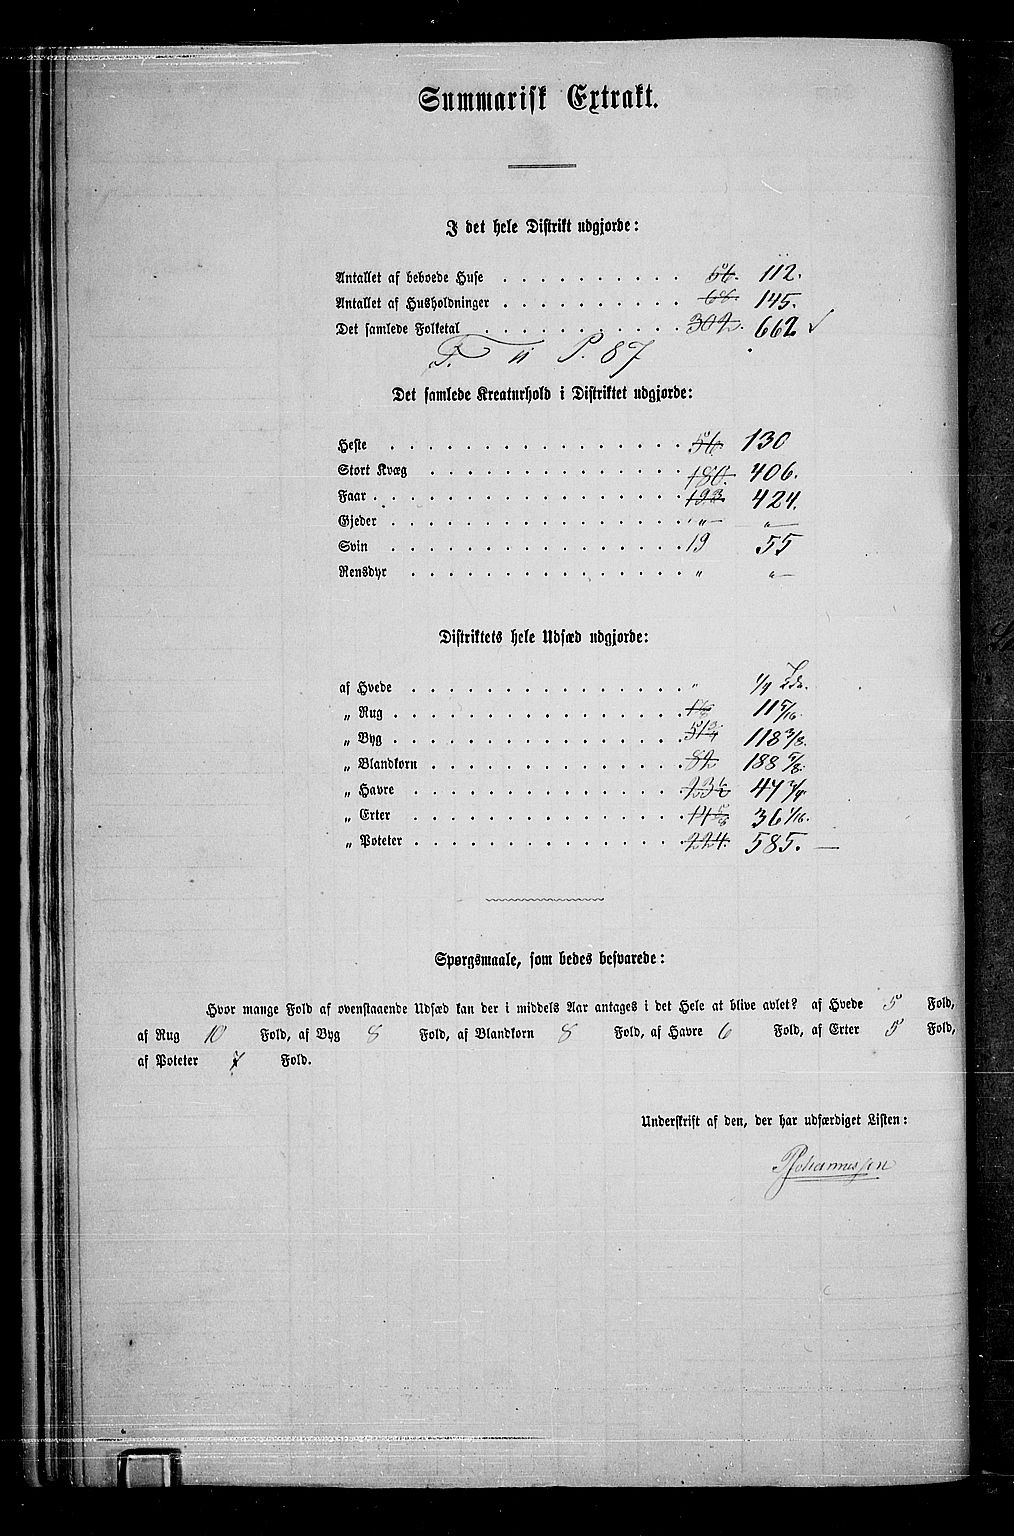 Summarisk Extrakt.
I det hele Distrikt udgjorde:
Antallet af beboede Huse . . . . . . . . . . 56. 112.
Antallet af Husholdninger . . . . . . . . . . 68. 145.
Det samlede Folketal . . . . . . . . . . 302. 662 ✓
P. 87
Det samlede Kreaturhold i Distriktet udgjorde:
Heste . . . . . . . . . . 56 130
Stort Kvæg . . . . . . . . . . 180. 406.
Faar . . . . . . . . . . 193. 424.
Gjeder . . . . . . . . . . „ „
Svin . . . . . . . . . . 19 55
Rensdyr . . . . . . . . . . „ „
Distriktets hele Udsæd udgjorde:
af Hvede . . . . . . . . . . „ 1/4 Tdr.
„ Rug . . . . . . . . . . 11 5/16.
„ Byg . . . . . . . . . . 51 3/4 118 3/8.
„ Blandkorn . . . . . . . . . . 82 188 5/8.
„ Havre . . . . . . . . . . 23 1/2 47 3/4.
„ Erter . . . . . . . . . . 36 1/16.
„ Poteter . . . . . . . . . . 224. 585.
Spørgsmaale, som bedes besvarede:
Hvor mange Fold af ovenstaaende Udsæd kan der i middels Aar antages i det Hele at blive avlet? af Hvede 5 Fold,
af Rug 10 Fold, af Byg 8 Fold, af Blandkorn 8 Fold, af Havre 6 Fold, af Erter 5 Fold,
af Poteter 7 Fold.
Underskrift af den, der har udfærdiget Listen:
PJohannessen